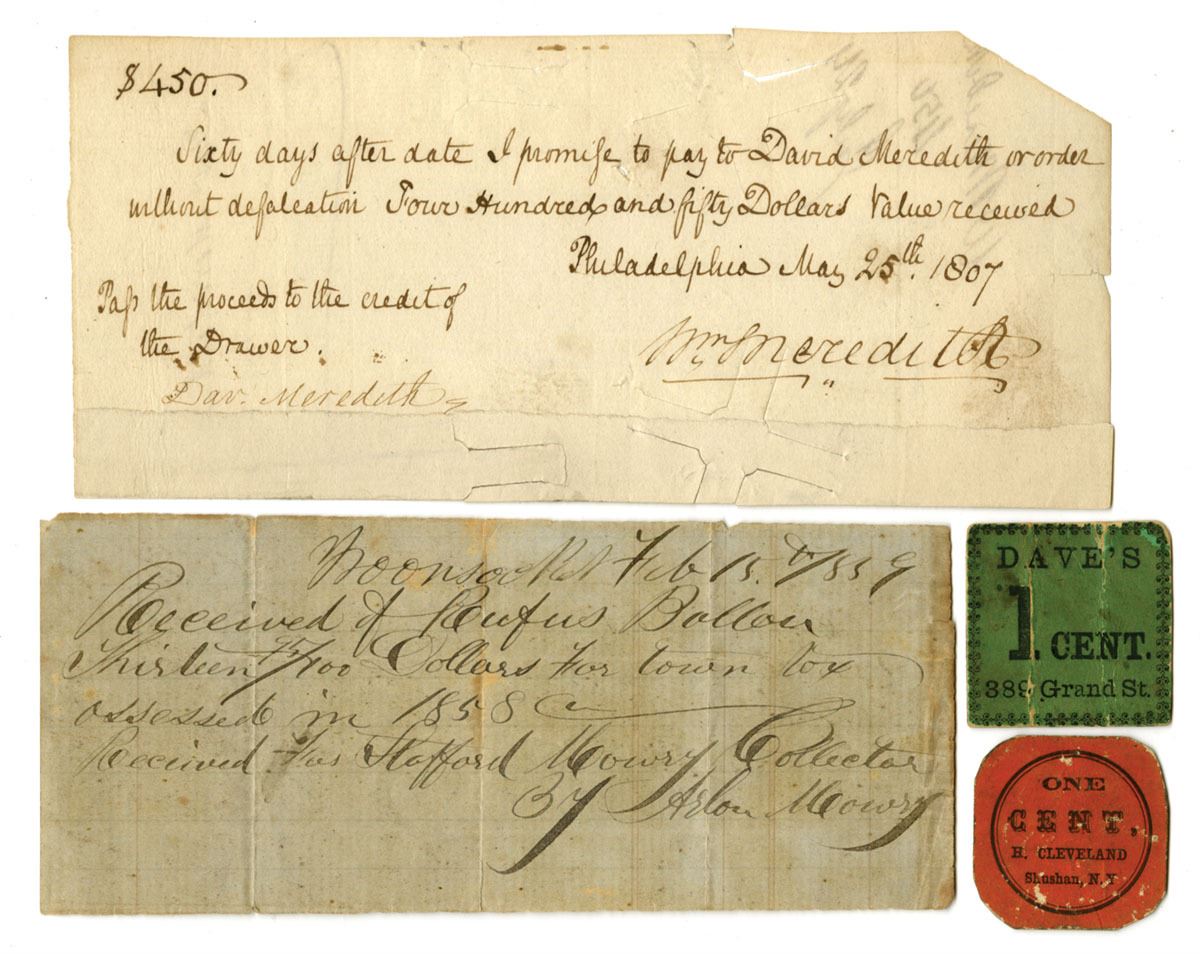 $450.
Sixty days after date I promise to pay to David Meredith or order
without defalcation Four Hundred and fifty Dollars Value received
Philadelphia May 25th. 1807
Pass the proceeds to the credit of
the Drawer.
Wm Meredith
Dav. Meredith
Woonsocket Feb 15th 1859
Received of Rufus Ballou
Thirteen /100 Dollars for town tax
assessed in 1858
Received for Stafford Mowry Collector
By Arlon Mowry
DAVE'S
1. CENT.
389 Grand St.
ONE
CENT,
H. CLEVELAND
Shushan, N.Y